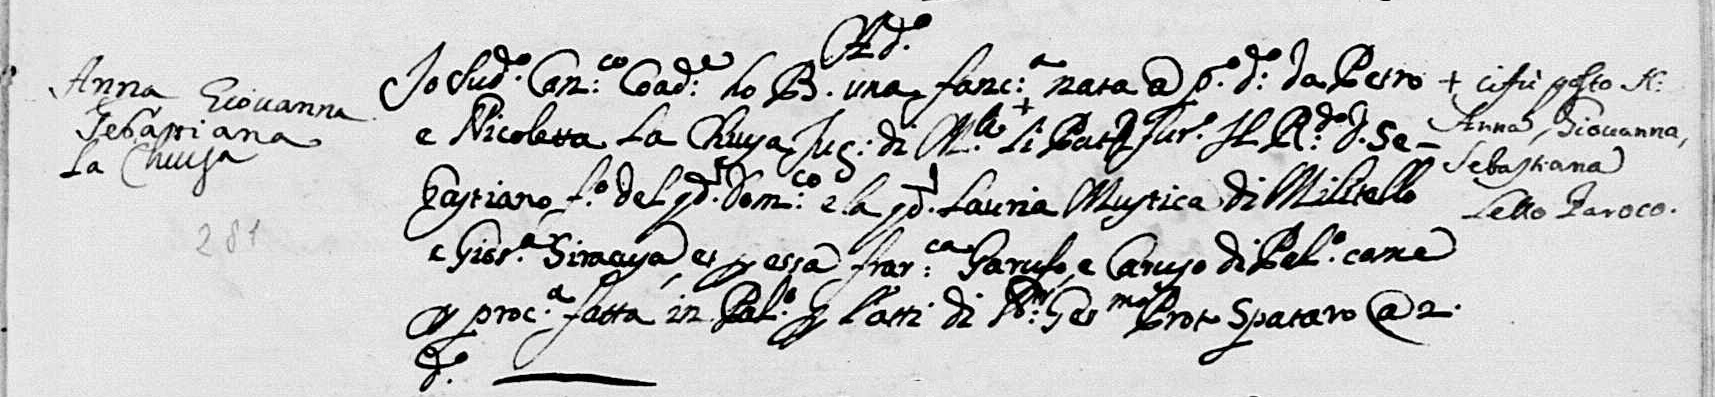 A d.º
Anna Giovanna
Sebastiana
La Chiusa
281
Io Sud.º Can.co Coad.e ho B. una fanc.a nata a p.º d.º da Pietro
e Nicoletta La Chiusa Jug: di M.li + li Patri fur.º Il R.do D. Se-
bastiano f.º del qd. Dom.co e la qd. Lauria Mustica di Militello
e Gios.a Siracusa, et p essa fran.ca Garufo, e Caruso di Pal.º come
p proc.a fatta in Pal.º p l'atti di N.r Ger.mo Prot. Spataro a 2.
d.º
+ ci fù posto N:
Anna, Giovanna,
Sebastiana
Lello Paroco.